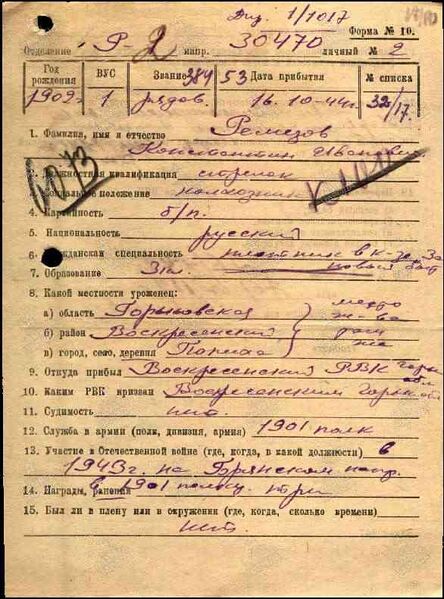 Див. 1/1017
Форма № 10.
Отделение Р-2 напр. 30470 личный № 2
Год рождения ВУС Звание Дата прибытия № списка
384 53
1909 г 1 рядов. 16.10-44г. 32/17.
1. Фамилия, имя и отчество Ремезов
Константин Иванович
2. Должностная квалификация стрелок
3. Социальное положение колхозник
4. Партийность б/п.
5. Национальность русский
6. Гражданская специальность плотник в к-зе За
новый быт
7. Образование 3 кл
8. Какой местности уроженец:
а) область Горьковская место
жи-ва
б) район Воскресенский
в) город, село, деревня
9. Откуда прибыл Воскресенский РВК Горьк
обл
10. Каким РВК призван Воскресенским Горьк обл
11. Судимость нет.
12. Служба в армии (полк, дивизия, армия) 1901 полк
13. Участие в Отечественной войне (где, когда, в какой должности) в
1943г. на Брянском напр.
14. Награды, ранения в 1901 полку
15. Был ли в плену или в окружении (где, когда, сколько времени)
нет